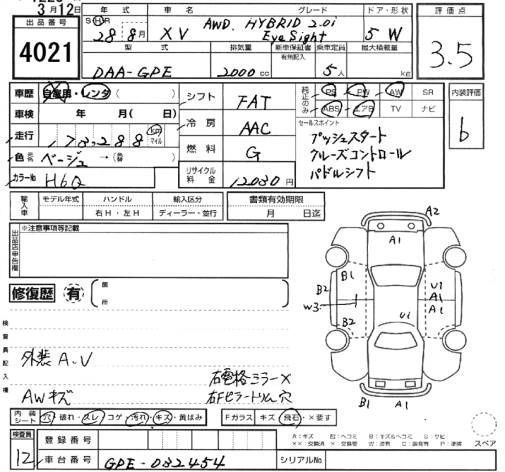 3月12日
出品番号
4021
年式 車名 グレード ドア・形状
SH 28年8月 XV AWD. HYBRID 2.0i EyeSight 5W
型式 排気量 新車保証書 有無記入 乗車定員 最大積載量
DAA-GPE 2000cc 5人 kg
評価点
3.5
車歴 自家用・レンタ( )
車検 年 月( 日)
走行 178,288 km マイル
色 元色 ベージュ →(替)
カラーNo H6Q
シフト FAT
冷房 AAC
燃料 G
リサイクル料金 12030円
純正のみ PS PW AW SR
ABS エアB TV ナビ
セールスポイント
プッシュスタート
クルーズコントロール
パドルシフト
内装評価
b
輸入車 モデル年式 ハンドル 輸入区分
右H・左H ディーラー・並行
書類有効期限
月 日迄
出品店申告欄
※注意事項等記載
修復歴 有 箇所
検査員記入欄
外装 A.V
AWキズ
右電格ミラー×
右Fピラートリム穴
A2
A1
B1
B2
W3
B2
U1
A1
A1
Ui
B1 A1
内装シート 穴 破れ・スレ コゲ・汚れ・キズ・黄ばみ
Fガラス キズ・飛石・×要す
スペア
検査員
12
登録番号
車台番号 GPE-032454
シリアルNo